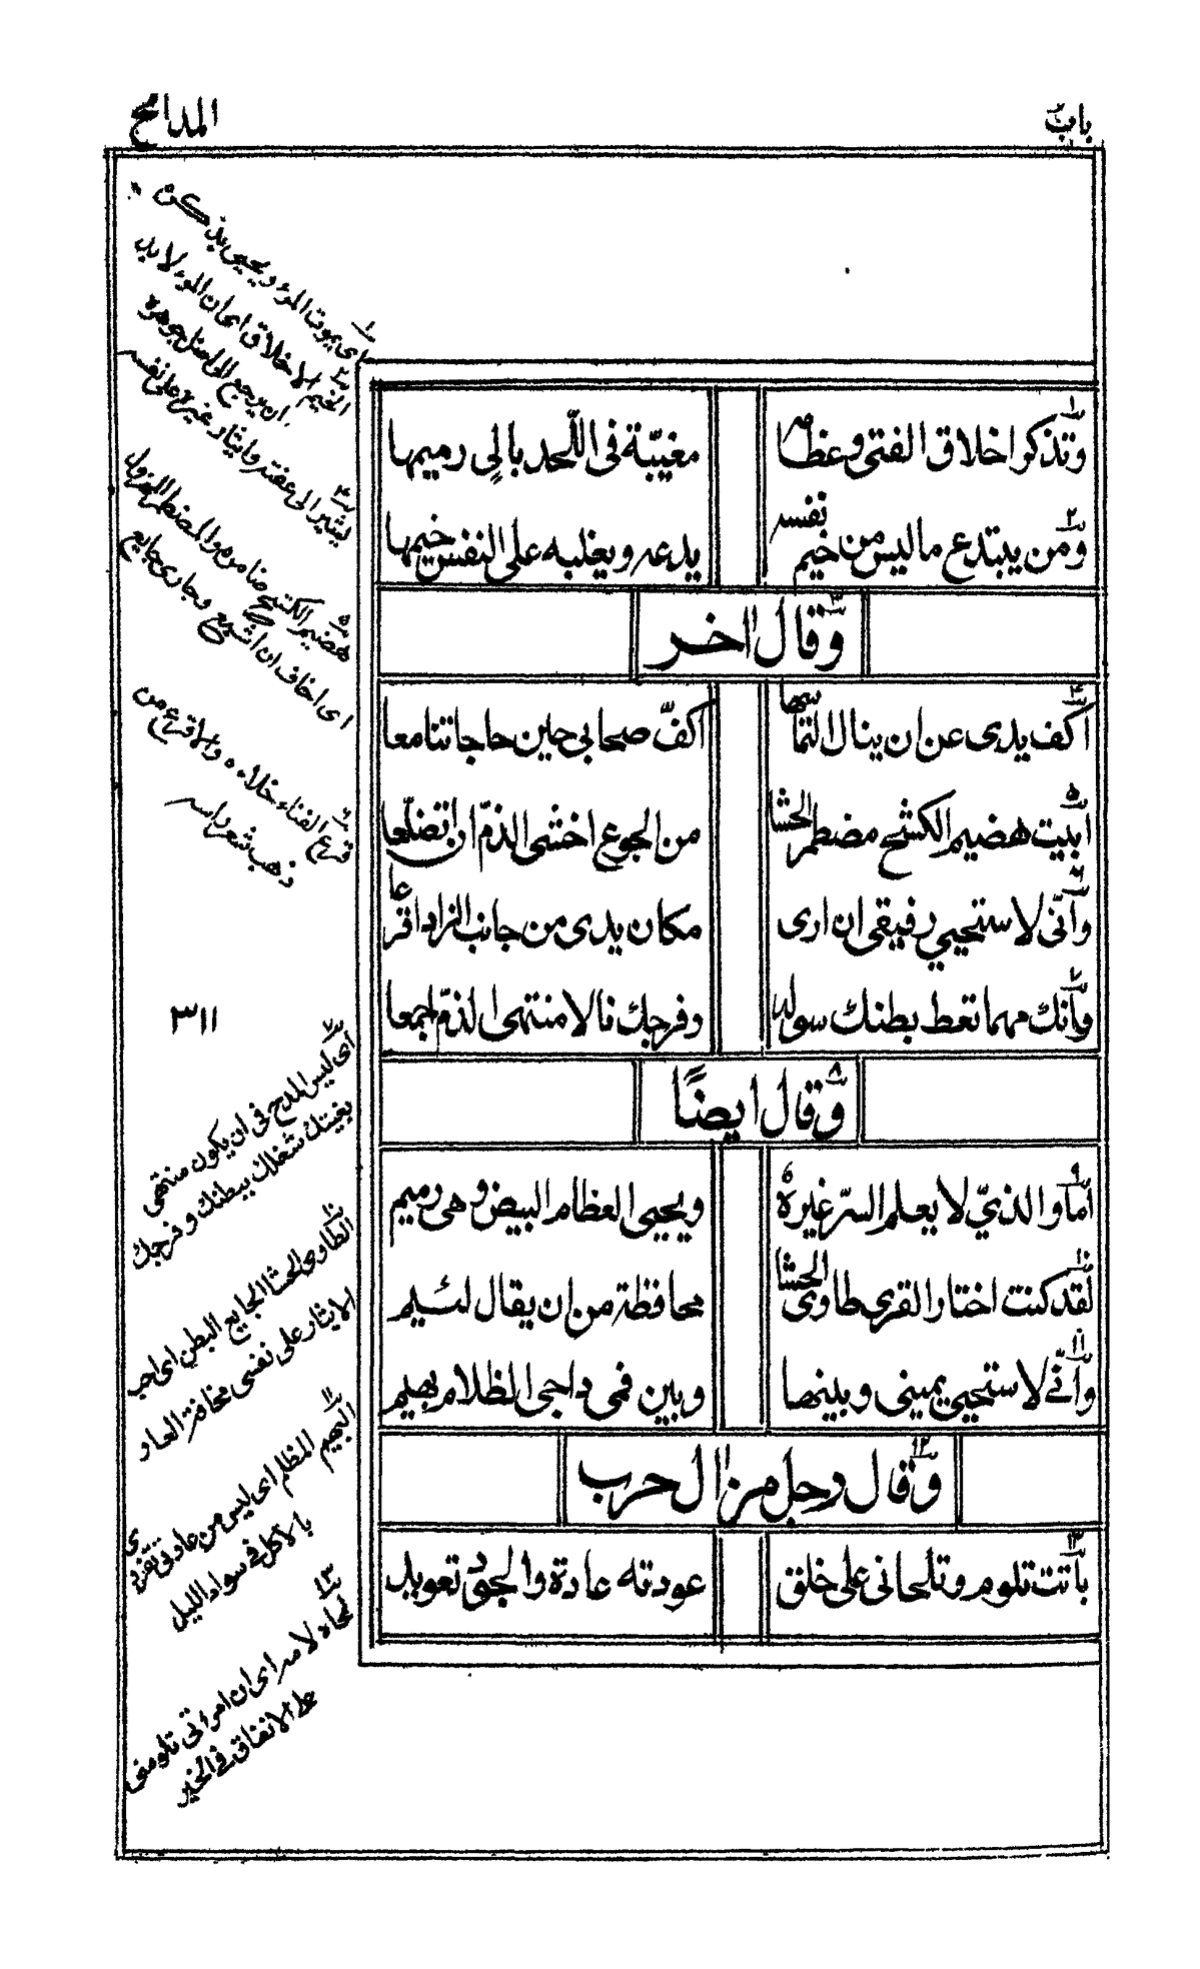 باب
المدائح
١ وتذكر اخلاق الفتى وعظامه
مغيّبة فى اللّحد بالٍى رميمها
٢ ومن يبتدع ما ليس من خيم نفسه
يدعه ويغلبه على النفس خيمها
٣ وقال اخر
٤ اكف يدى عن ان ينال التماسها
اكفّ صحابى حين حاجاتنا معا
٥ ابيت هضيم الكشح مضطمر الحشا
من الجوع اخشى الذمّ ان اتضلّعا
٦ وانّى لاستحيي رفيقى ان ارى
مكان يدى من جانب الزاد اقرعا
٧ وانك مهما تعط بطنك سوله
وفرجك نالا منتهى الذمّ اجمعا
٨ وقال ايضًا
٩ اما والذيّ لا يعلم السرّ غيره
ويحيى العظام البيض وهى رميم
١٠ لقد كنت اختار القرى طاوى الحشا
محافظة من ان يقال لئيم
١١ وانّى لاستحيى يمينى وبينها
وبين فمى داجى الظلام بهيم
١٢ وقال رجل من ال حرب
١٣ باتت تلوم وتلحانى على خلق
عودته عادة والجود تعويد
١ اى يموت المرء ويحيى بذكره
٢ الخيم الاخلاق اى ان المرء لا بد
ان يرجع الى اصل جوهره
٤ يشير الى عفته وايثار غيره على نفسه
٥ هضيم الكشح ضامره والمضطمر المهزول
اى اخاف ان اشبع وجارى جايع
٦ قرع الفناء خلاء ه والاقرع من
ذهب شعر راسه
٣١١
٧ اى ليس المدح فى ان يكون منتهى
بغيتك شغلك ببطنك وفرجك
١٠ الطاوى الحشا الجايع البطن اى احب
الايثار على نفسى مخافة العار
١١ البهيم المظلم اى ليس من عادتى تفردى
بالاكل فى سواد الليل
١٣ لحاه لامه اى ان امراتى تلومنى
على الانفاق فى الخير